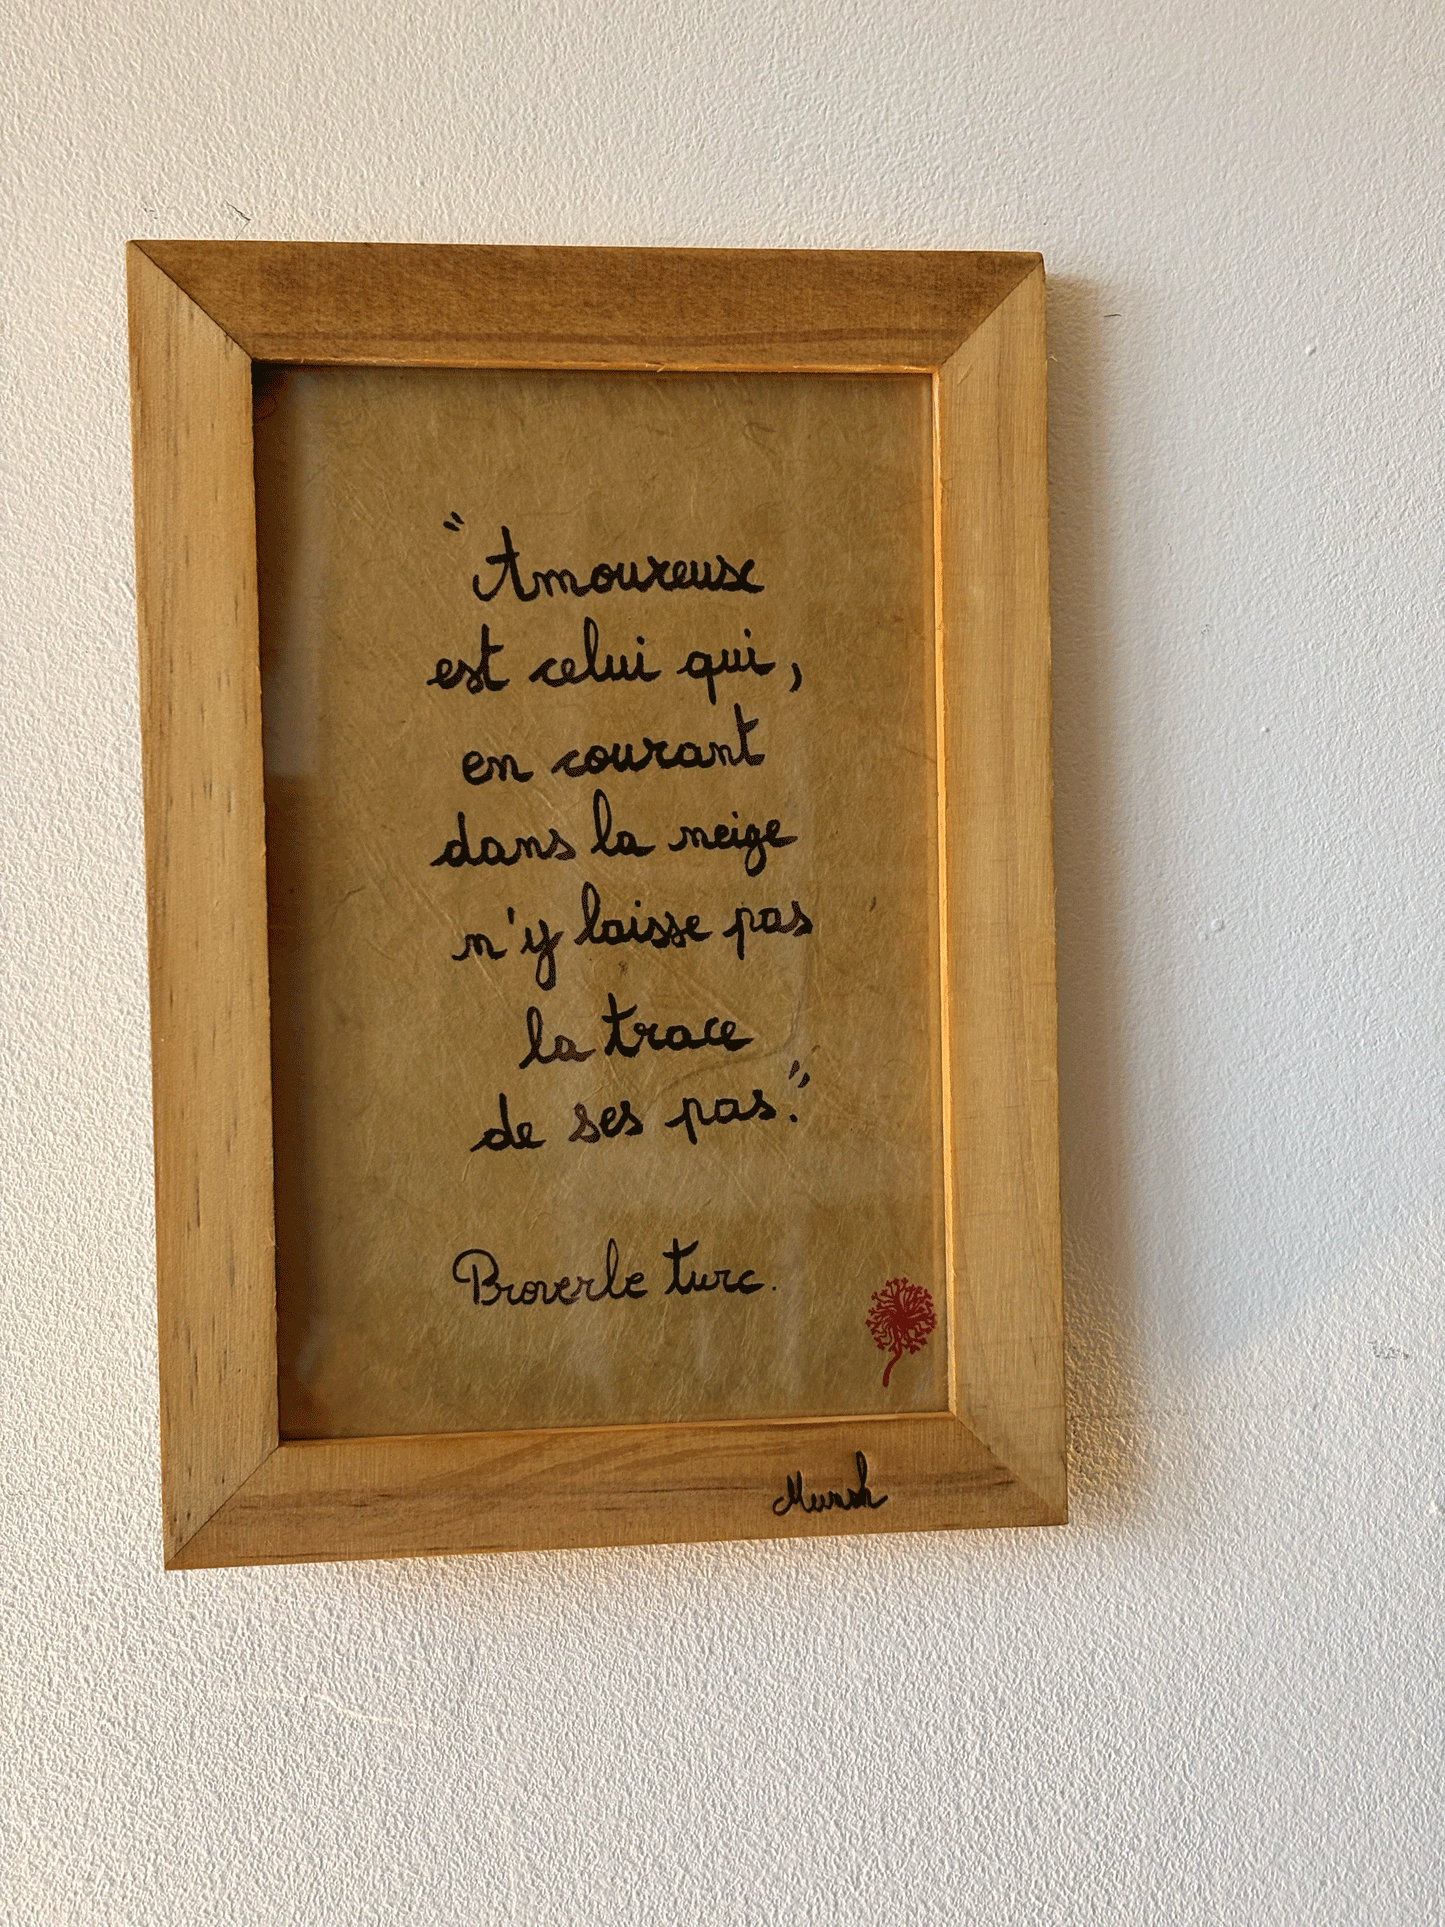 "Amoureuse
est celui qui,
en courant
dans la neige
n'y laisse pas
la trace
de ses pas."
Proverbe turc.